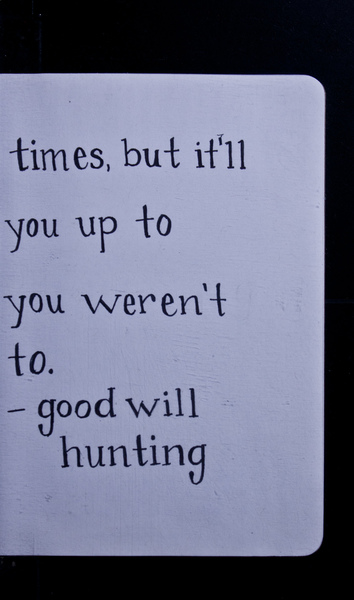 times, but it'll
you up to
you weren't
to.
- good will
hunting